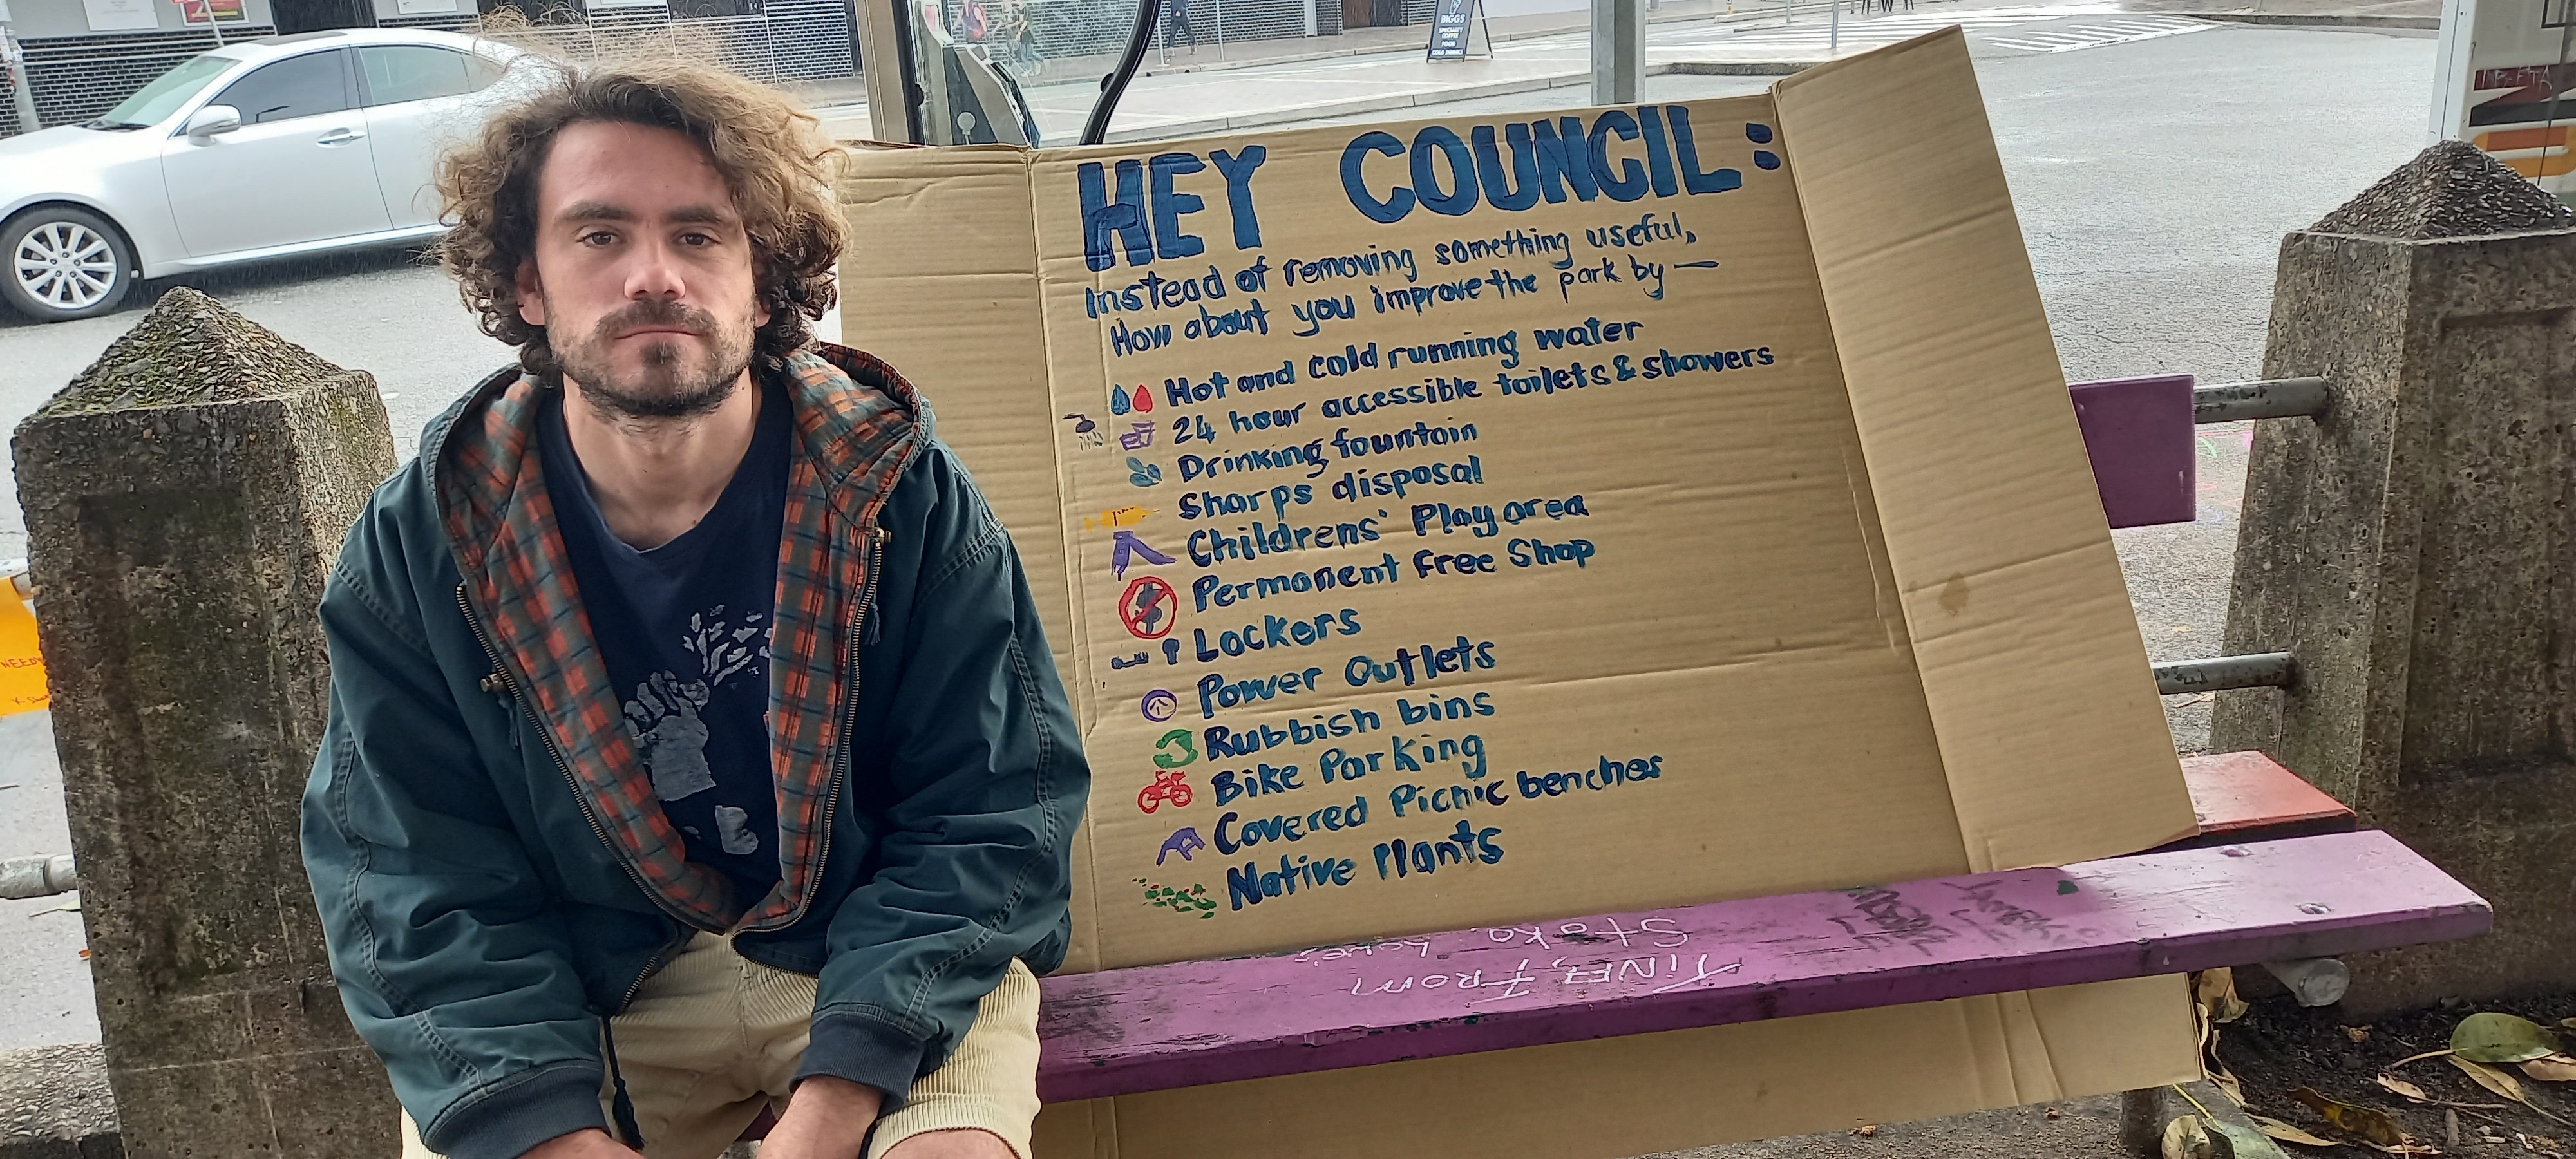 HEY COUNCIL:
Instead of removing something useful,
How about you improve the park by —
Hot and cold running water
24 hour accessible toilets & showers
Drinking fountain
Sharps disposal
Childrens' Play area
Permanent Free Shop
Lockers
Power Outlets
Rubbish bins
Bike Parking
Covered Picnic benches
Native Plants
FROM
BIGGS
SPECIALTY
COFFEE
FOOD
COLD DRINKS